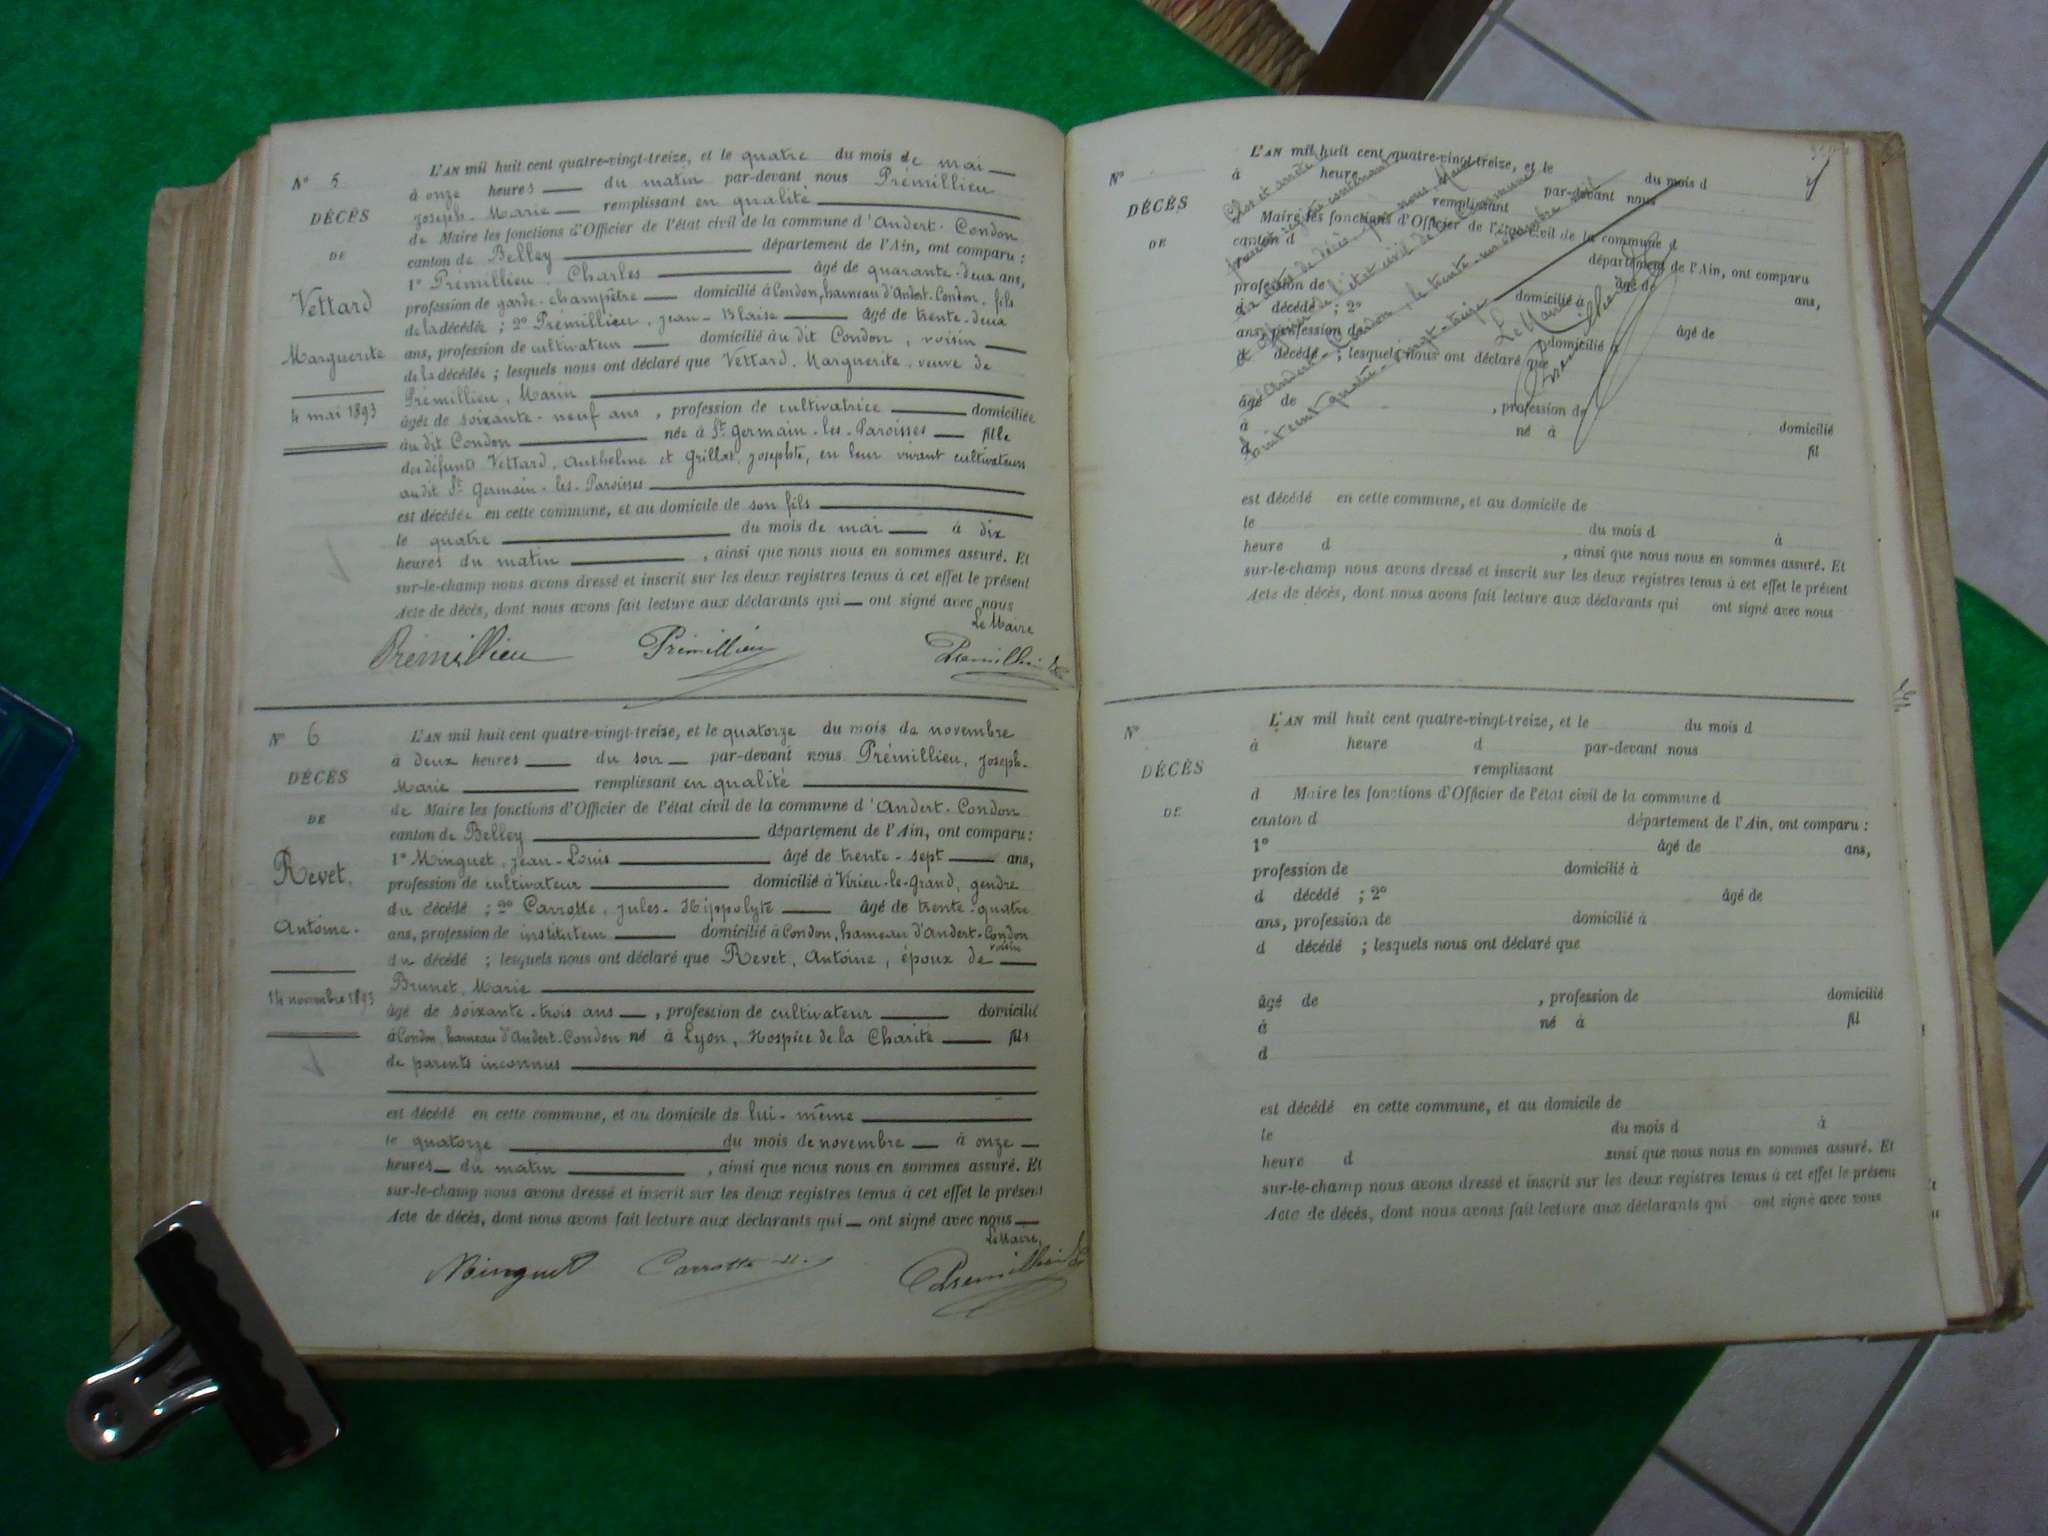 N° 5
DÉCÈS
DE
Vettard
Marguerite
4 mai 1893
L'AN mil huit cent quatre-vingt-treize, et le quatre du mois de mai
à onze heures du matin par-devant nous Prémillieu
Joseph-Marie remplissant en qualité
de Maire les fonctions d'Officier de l'état civil de la commune d'Andert-Condon
canton de Belley département de l'Ain, ont comparu :
1° Prémillieu, Charles âgé de quarante-deux ans,
profession de garde-champêtre domicilié à Condon, hameau d'Andert-Condon, fils
de la décédée ; 2° Prémillieu, Jean-Blaise âgé de trente-deux
ans, profession de cultivateur domicilié au dit Condon, voisin
de la décédée ; lesquels nous ont déclaré que Vettard, Marguerite, veuve de
Prémillieu, Marin
âgée de soixante-neuf ans, profession de cultivatrice domiciliée
au dit Condon née à St Germain-les-Paroisses fille
des défunts Vettard, Anthelme et Grillat, Josephte, en leur vivant cultivateurs
au dit St Germain-les-Paroisses
est décédée en cette commune, et au domicile de son fils
le quatre du mois de mai à dix
heures du matin, ainsi que nous nous en sommes assuré. Et
sur-le-champ nous avons dressé et inscrit sur les deux registres tenus à cet effet le présent
Acte de décès, dont nous avons fait lecture aux déclarants qui ont signé avec nous
Le Maire
Prémillieu Prémillieu Prémillieu
N° 6
DÉCÈS
DE
Revet,
Antoine.
14 novembre 1893
L'AN mil huit cent quatre-vingt-treize, et le quatorze du mois de novembre
à deux heures du soir par-devant nous Prémillieu, Joseph-
Marie remplissant en qualité
de Maire les fonctions d'Officier de l'état civil de la commune d'Andert-Condon
canton de Belley département de l'Ain, ont comparu :
1° Minguet, Jean-Louis âgé de trente-sept ans,
profession de cultivateur domicilié à Virieu-le-Grand, gendre
du décédé ; 2° Carrotte, Jules-Hippolyte âgé de trente-quatre
ans, profession de instituteur domicilié à Condon, hameau d'Andert-Condon
voisin
du décédé ; lesquels nous ont déclaré que Revet, Antoine, époux de
Brunet, Marie
âgé de soixante-trois ans, profession de cultivateur domicilié
à Condon, hameau d'Andert-Condon né à Lyon, Hospice de la Charité fils
de parents inconnus
est décédé en cette commune, et au domicile de lui-même
le quatorze du mois de novembre à onze
heures du matin, ainsi que nous nous en sommes assuré. Et
sur-le-champ nous avons dressé et inscrit sur les deux registres tenus à cet effet le présent
Acte de décès, dont nous avons fait lecture aux déclarants qui ont signé avec nous
Le Maire,
Minguet Carrotte Prémillieu
N°
DÉCÈS
DE
L'AN mil huit cent quatre-vingt-treize, et le du mois d
à heure par-devant nous
remplissant
Maire les fonctions d'Officier de l'état civil de la commune d
canton d département de l'Ain, ont comparu
profession de âgé de ans,
d décédé ; 2° domicilié à
ans, profession de âgé de
d décédé ; lesquels nous ont déclaré que domicilié à
âgé de , profession de domicilié
à né à fil
d
est décédé en cette commune, et au domicile de
le du mois d à
heure d , ainsi que nous nous en sommes assuré. Et
sur-le-champ nous avons dressé et inscrit sur les deux registres tenus à cet effet le présent
Acte de décès, dont nous avons fait lecture aux déclarants qui ont signé avec nous
Clos et arrêté le
présent registre contenant
six actes de décès, par nous, Maire
officier de l'état civil de la commune
d'Andert-Condon, le trente-un décembre mil
huit cent quatre-vingt-treize
Le Maire
Prémillieu
N°
DÉCÈS
DE
L'AN mil huit cent quatre-vingt-treize, et le du mois d
à heure d par-devant nous
remplissant
d Maire les fonctions d'Officier de l'état civil de la commune d
canton d département de l'Ain, ont comparu :
1° âgé de ans,
profession de domicilié à
d décédé ; 2° âgé de
ans, profession de domicilié à
d décédé ; lesquels nous ont déclaré que
âgé de , profession de domicilié
à né à fil
d
est décédé en cette commune, et au domicile de
le du mois d à
heure d ainsi que nous nous en sommes assuré. Et
sur-le-champ nous avons dressé et inscrit sur les deux registres tenus à cet effet le présent
Acte de décès, dont nous avons fait lecture aux déclarants qui ont signé avec nous